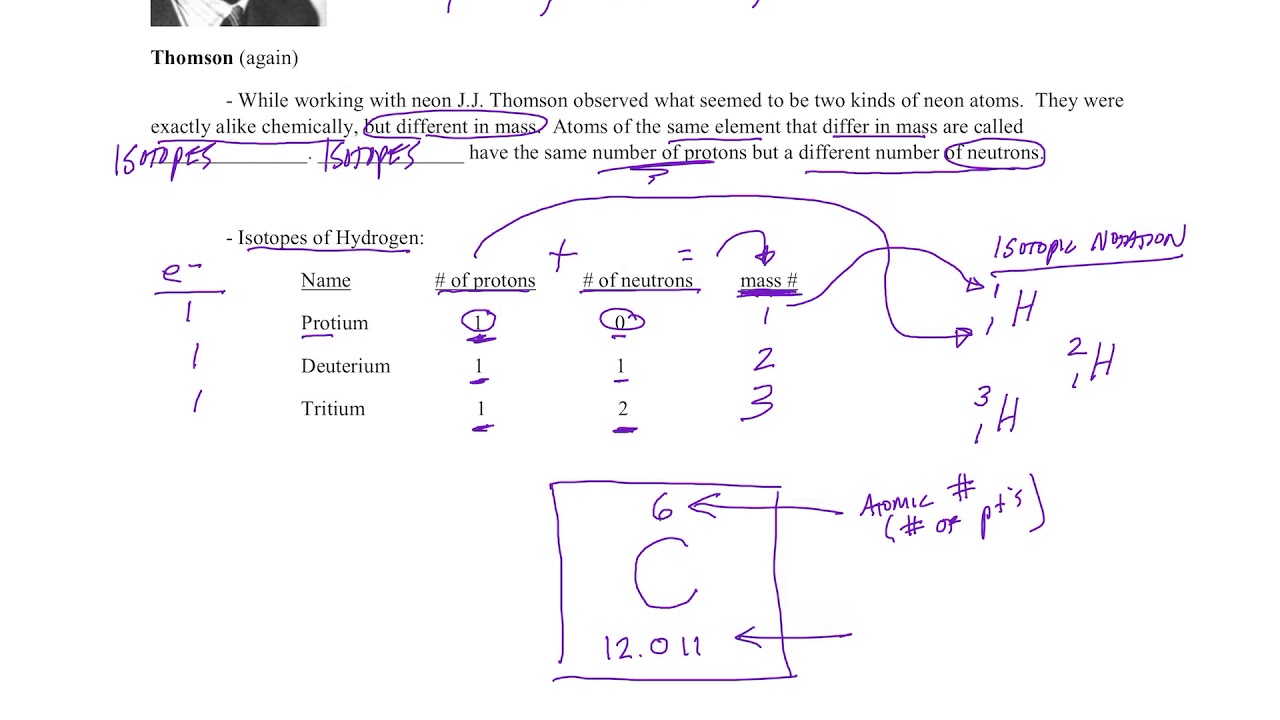 Thomson (again)
- While working with neon J.J. Thomson observed what seemed to be two kinds of neon atoms. They were
exactly alike chemically, but different in mass. Atoms of the same element that differ in mass are called
ISOTOPES. ISOTOPES have the same number of protons but a different number of neutrons.
- Isotopes of Hydrogen: + = ISOTOPIC NOTATION
e⁻ Name # of protons # of neutrons mass #
1 Protium 1 0 1 ¹₁H
1 Deuterium 1 1 2 ²₁H
1 Tritium 1 2 3 ³₁H
6 ATOMIC #
(# OF p+'s)
C
12.011